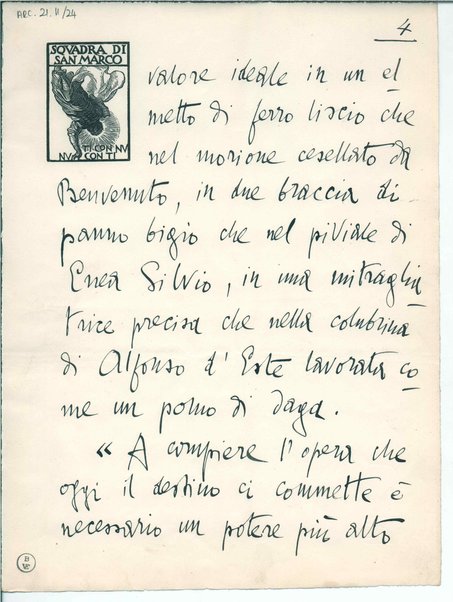 ARC. 21.II/24
4
SQVADRA DI
SAN MARCO
TI CON NV
NVA CON TI
valore ideale in un el
metto di ferro liscio che
nel morione cesellato da
Benvenuto, in due braccia di
panno bigio che nel piviale di
Enea Silvio, in una mitraglia
trice precisa che nella colubrina
di Alfonso d'Este lavorata co
me un pomo di daga.
“ A compiere l'opera che
oggi il destino ci commette è
necessario un potere più alto
B
W